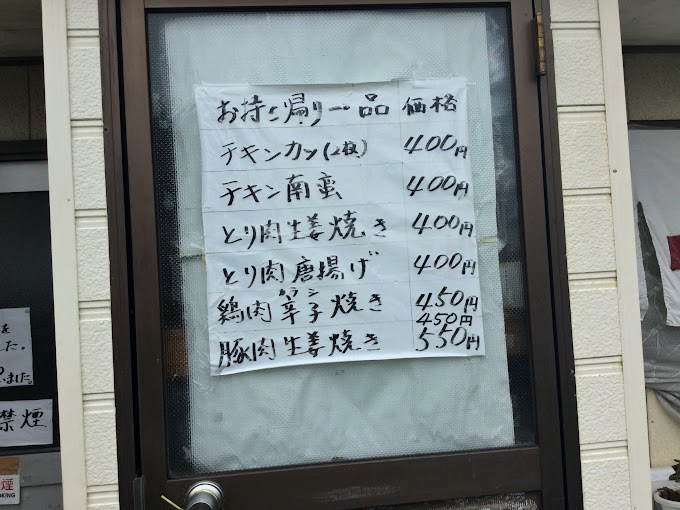 お持ち帰り一品 価格
チキンカツ(2枚) 400円
チキン南蛮 400円
とり肉生姜焼き 400円
とり肉唐揚げ 400円
カラシ
鶏肉辛子焼き 450円
450円
豚肉生姜焼き 550円
を
した。
いました。
禁煙
煙